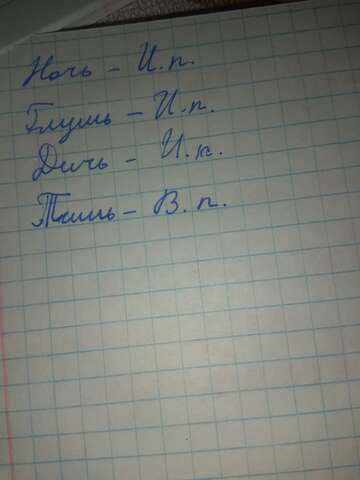 Ночь - И. п.
Глушь - И. п.
Дичь - И. п.
Тишь - В. п.